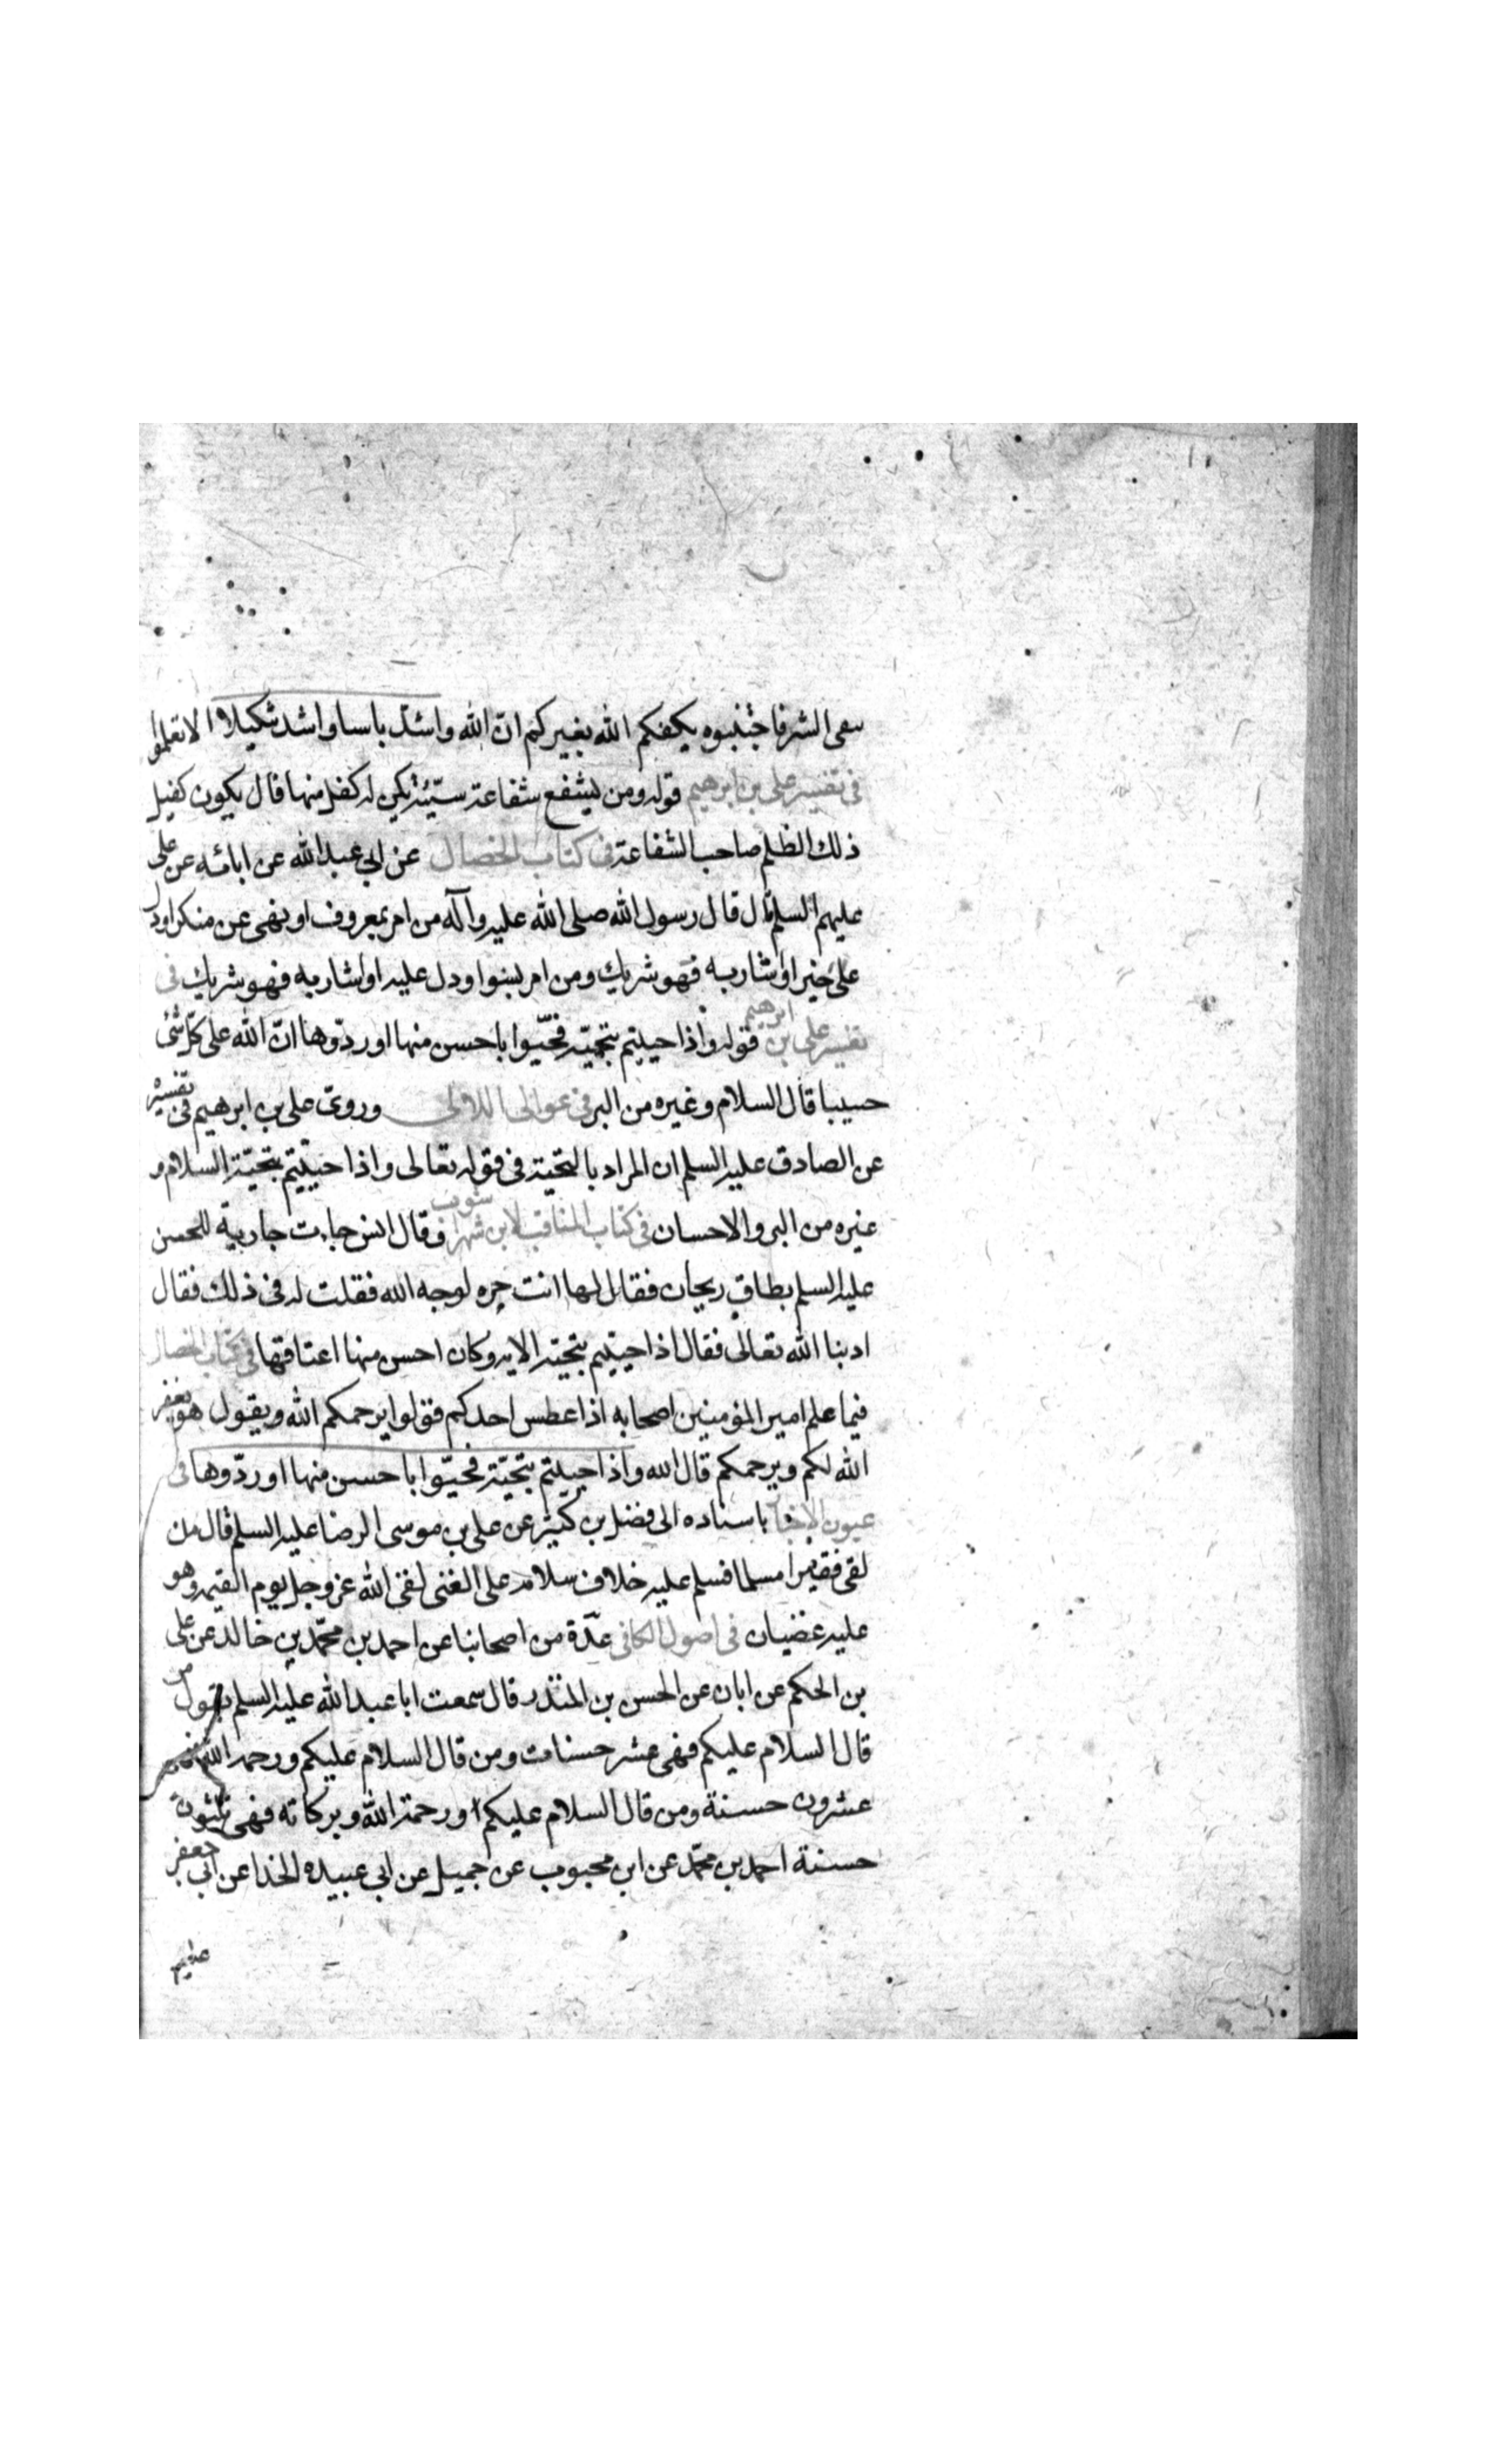 سعى الشر فاجتنبوه يكفكم الله بغيركم ان الله واشد باسا واشد تنكيلا الا تعلموا
في تفسير على بن ابرهيم قوله ومن يشفع شفاعة سيئة يكن له كفل منها قال يكون كفيل
ذلك الظلم صاحب الشفاعة في كتاب الخصال عن ابى عبد الله عن ابائه عن على
عليهم السلم قال قال رسول الله صلى الله عليه وآله من امر بمعروف او نهى عن منكر او دل
على خير او اشار به فهو شريك ومن امر بسوا ودل عليه او اشار به فهو شريك فى
تفسير على بن ابرهيم قوله واذا حييتم بتحيّة فحيّوا باحسن منها او ردّوها انّ الله على كلّ شئ
حسيبا قال السلام وغيره من البر فى عوالى اللالى وروى على بن ابرهيم فى تفسيره
عن الصادق عليه السلم ان المراد بالتحية فى قوله تعالى واذا حييتم بتحيّة السلام و
غيره من البر والاحسان فى كتاب المناقب لابن شهراشوب وقال انس جاءت جارية للحسن
عليه السلم بطاق ريحان فقال لها انت حره لوجه الله فقلت له فى ذلك فقال
ادبنا الله تعالى فقال اذا حييتم بتحية الايه وكان احسن منها اعتاقها فى كتاب الخصال
فيما علم امير المؤمنين اصحابه اذا عطس احدكم فقولوا يرحمكم الله ويقول هو يغفر
الله لكم ويرحمكم قال الله واذا حييتم بتحيّة فحيّوا باحسن منها او ردّوها فى
عيون الاخبار باسناده الى فضل بن كثير عن على بن موسى الرضا عليه السلم قال من
لقى فقيرا مسلما فسلم عليه خلاف سلامه على الغنى لقى الله عز وجل يوم القيمه وهو
عليه غضبان فى اصول الكافى عدّة من اصحابنا عن احمد بن محمّد بن خالد عن على
بن الحكم عن ابان عن الحسن بن المنذر قال سمعت ابا عبد الله عليه السلم يقول من
قال السلام عليكم فهى عشر حسنات ومن قال السلام عليكم ورحمة الله فهى
عشرون حسنة ومن قال السلام عليكم ورحمة الله وبركاته فهى ثلثون
حسنة احمد بن محمّد عن ابن محبوب عن جميل عن ابى عبيده الحذا عن ابى جعفر
عليهم